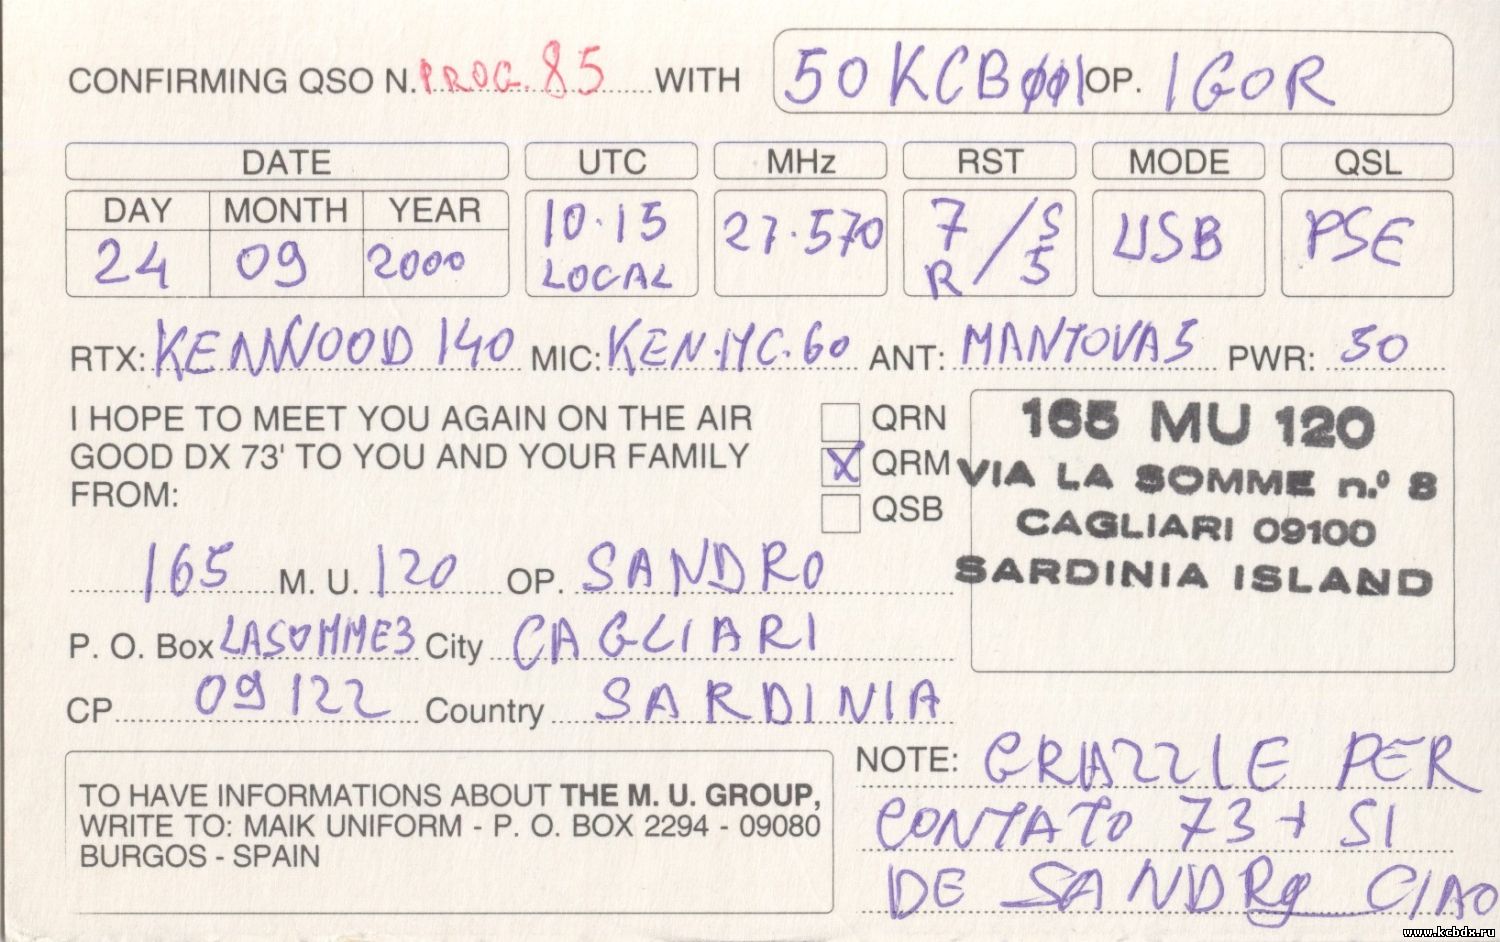 CONFIRMING QSO N. PROG. 85 WITH 50 KCB001 OP. IGOR
DATE UTC MHz RST MODE QSL
DAY MONTH YEAR
24 09 2000 10.15 LOCAL 27.570 R 7 / S 5 USB PSE
RTX: KENWOOD 140 MIC: KEN.MC.60 ANT: MANTOVA 5 PWR: 50
I HOPE TO MEET YOU AGAIN ON THE AIR
GOOD DX 73' TO YOU AND YOUR FAMILY
FROM:
QRN
X QRM
QSB
165 MU 120
VIA LA SOMME n.º 8
CAGLIARI 09100
SARDINIA ISLAND
165 M. U. 120 OP. SANDRO
P. O. Box LASOMME3 City CAGLIARI
CP 09122 Country SARDINIA
TO HAVE INFORMATIONS ABOUT THE M. U. GROUP,
WRITE TO: MAIK UNIFORM - P. O. BOX 2294 - 09080
BURGOS - SPAIN
NOTE: GRAZZIE PER
CONTATO 73 + 51
DE SANDRO CIAO
www.kcbdx.ru